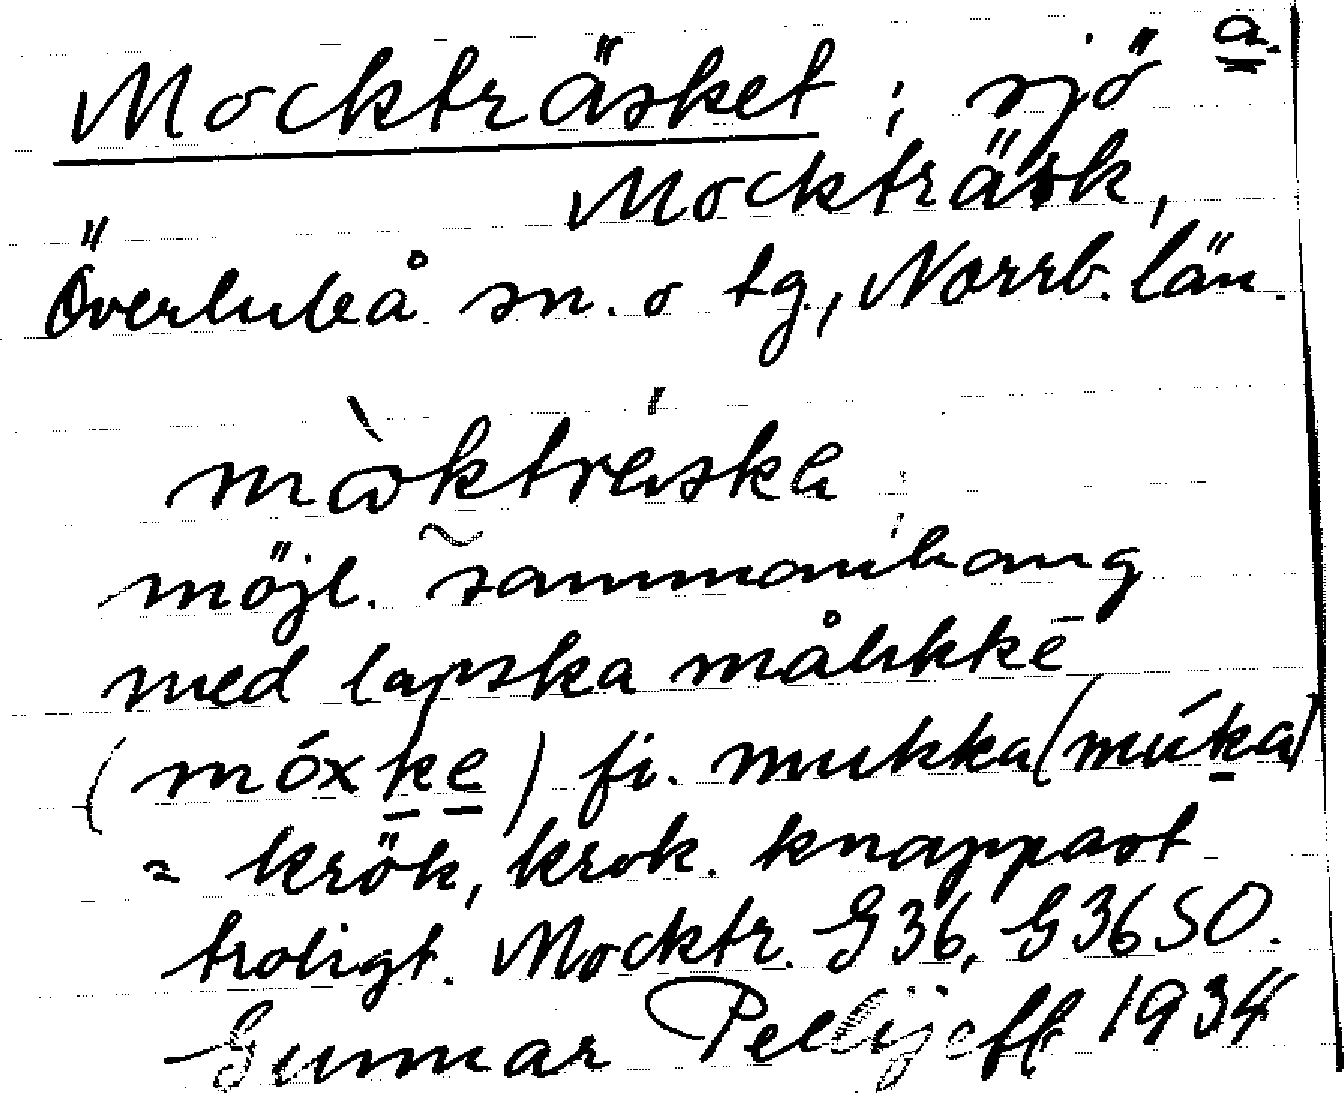 Mockträsket ; sjö a.
Mockträsk,
Överluleå sn. o tg, Norrb. län.
mòkträ́ska
möjl. sammanhang
med lapska måhkkē
(móxke) fi. mukka (múka)
= krök, krok. knappast
troligt. Mocktr. G36, G36SO.
Gunnar Pellijeff 1934